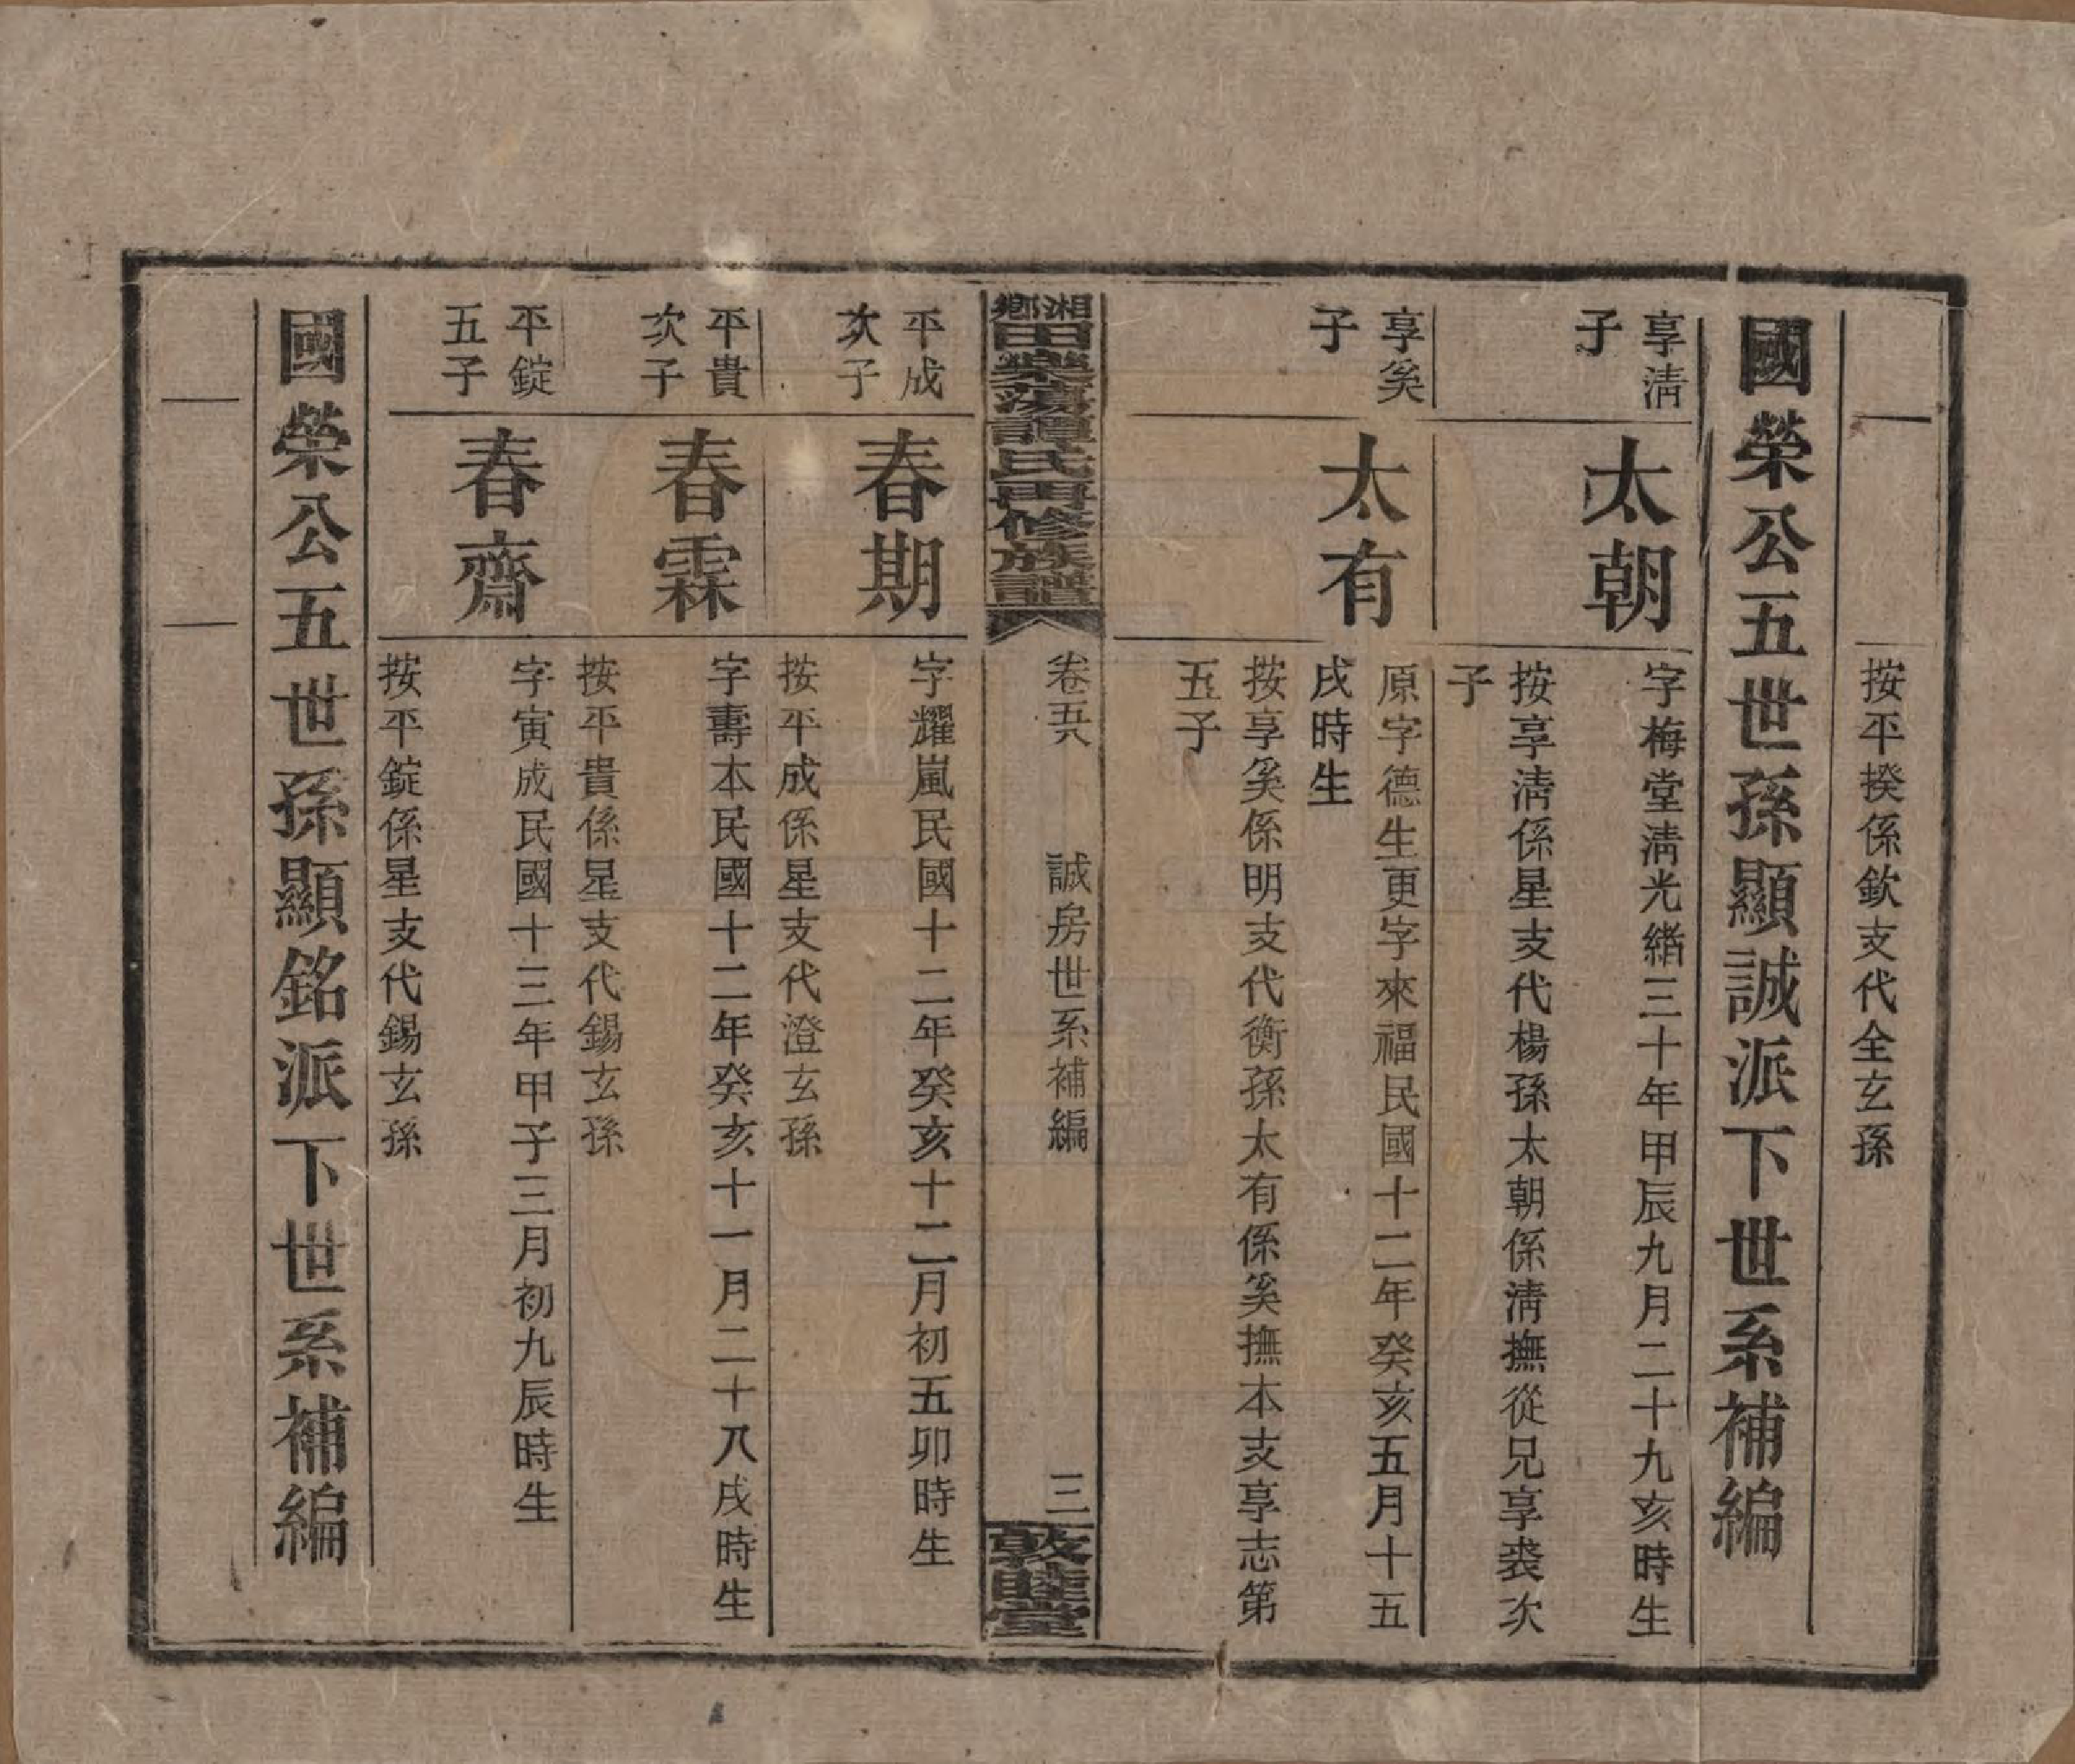 按平揆係欽支代全玄孫
國榮公五世孫顯誠派下世系補編
享淸
子
太朝
字梅堂淸光緖三十年甲辰九月二十九亥時生
按享淸係星支代楊孫太朝係淸撫從兄享裘次
子
享奚
子
太有
原字德生更字來福民國十二年癸亥五月十五
戌時生
按享奚係明支代衡孫太有係奚撫本支享志第
五子
湘鄉
田樂蕩譚氏再修族譜
卷五八
誠房世系補編
三
敦睦堂
平成
次子
春期
字耀嵐民國十二年癸亥十二月初五卯時生
按平成係星支代澄玄孫
平貴
次子
春霖
字壽本民國十二年癸亥十一月二十八戌時生
按平貴係星支代錫玄孫
平錠
五子
春齋
字寅成民國十三年甲子三月初九辰時生
按平錠係星支代錫玄孫
國榮公五世孫顯銘派下世系補編